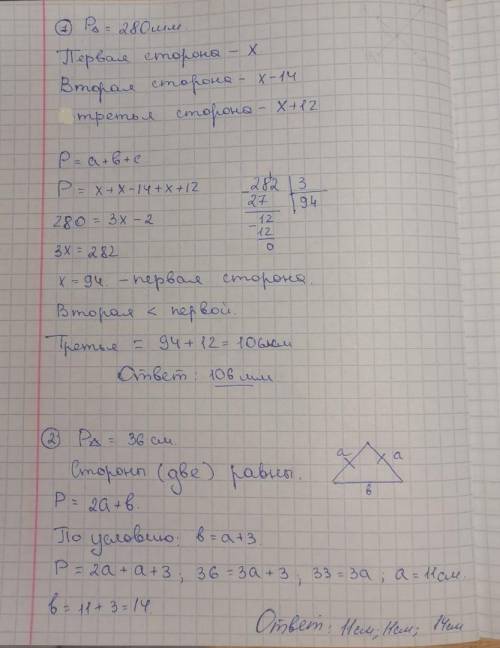 1) P△ = 280мм.
Первая сторона - x
Вторая сторона - x-14
третья сторона - x+12
P = a+в+c
P = x+x-14+x+12
280 = 3x-2
3x = 282
282 3
27 94
12
12
0
x = 94 - первая сторона.
Вторая < первой.
Третья = 94+12 = 106мм
Ответ: 106 мм
2) P△ = 36 см.
Стороны (две) равны.
a a
в
P = 2a+в.
По условию: в = a+3
P = 2a+a+3; 36 = 3a+3; 33 = 3a; a = 11см.
в = 11+3 = 14
Ответ: 11см; 11см; 14см